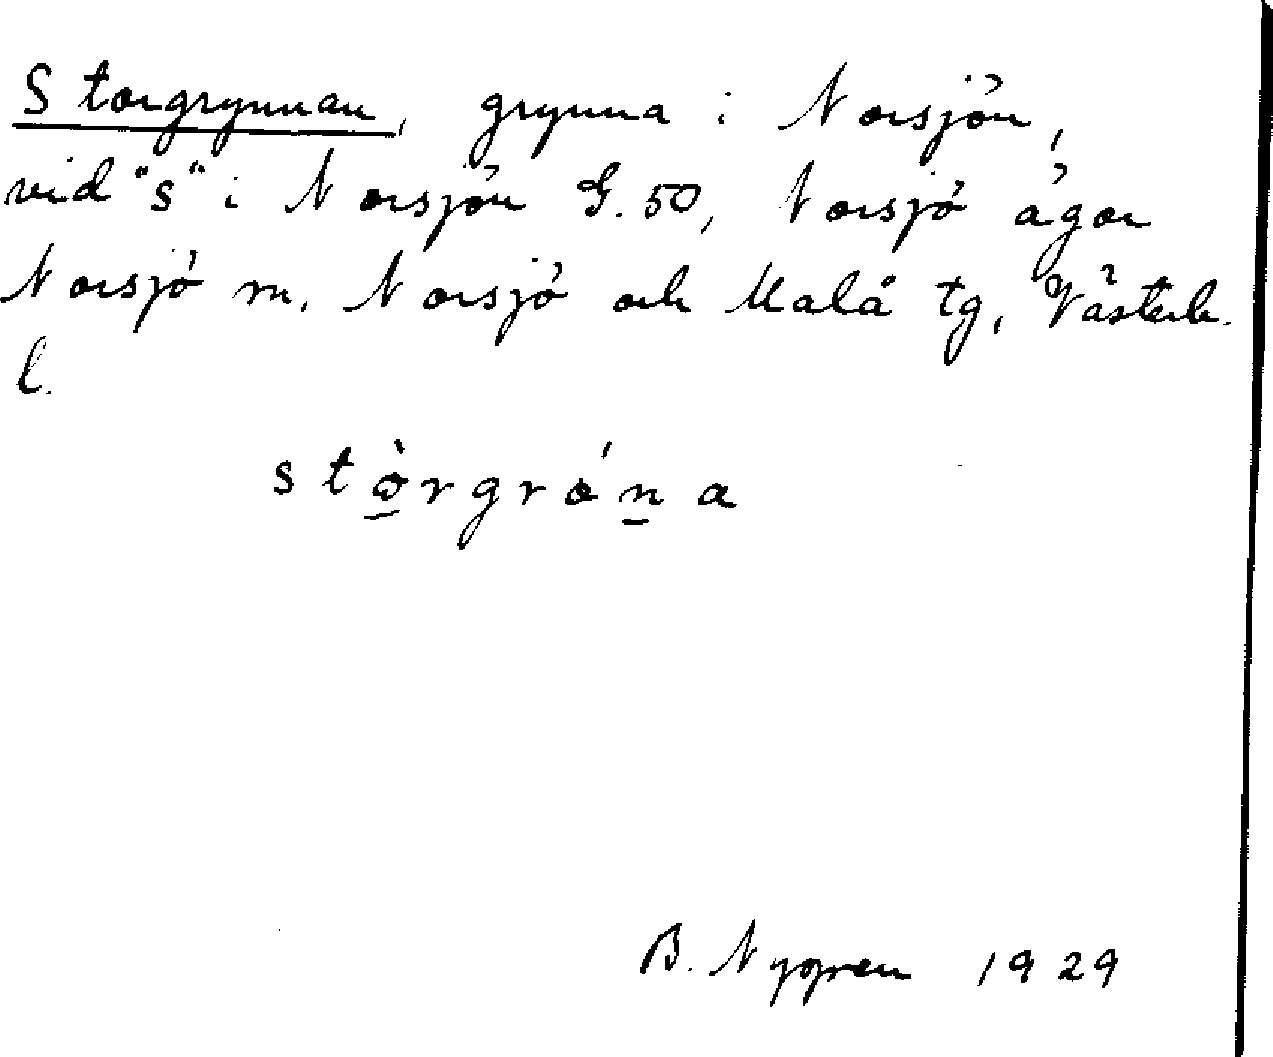 Storgrynnan, grynna i Norsjön,
vid "s" i Norsjön G. 50, Norsjö ägor
Norsjö sn. Norsjö och Malå tg, Västerb.
l.
stò̱rgrǿṉa
B. Nygren 1929